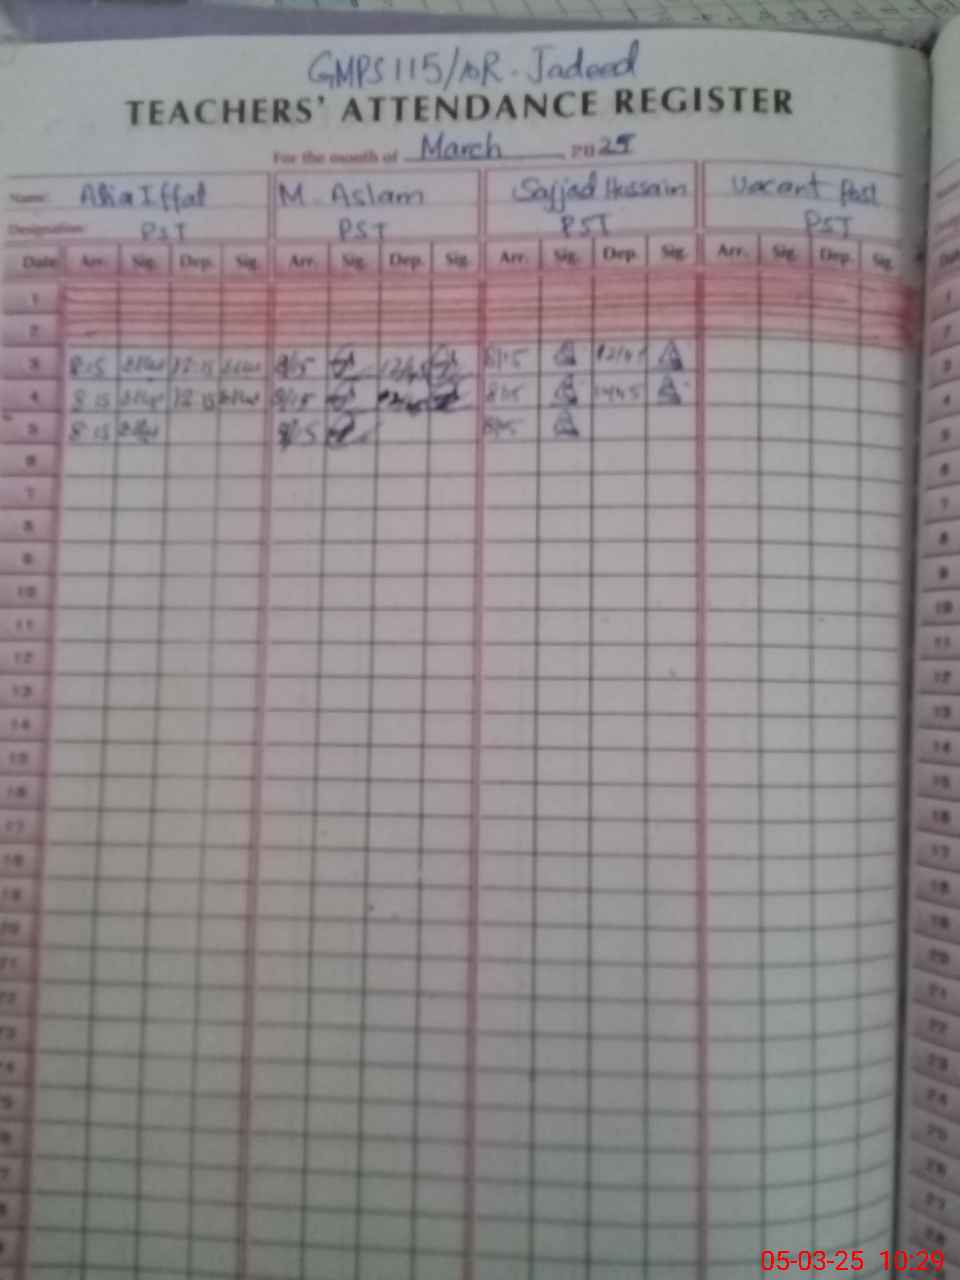 GMPS 115/10R. Jadeed
TEACHERS' ATTENDANCE REGISTER
For the month of March 2025
Name: Alia Iffat M. Aslam Sajjad Hussain Vacant Post
Designation: PST PST PST PST
Date Arr. Sig. Dep. Sig. Arr. Sig. Dep. Sig. Arr. Sig. Dep. Sig. Arr. Sig. Dep. Sig.
1
2
3 8:15 12:15 8/15 12/45 8/15 12/45
4 8 15 12 15 8/15 12/45 8/15
5 8 15 8/15 8/15
6
7
8
9
10
11
12
13
14
15
16
17
18
19
20
21
22
23
05-03-25 10:29